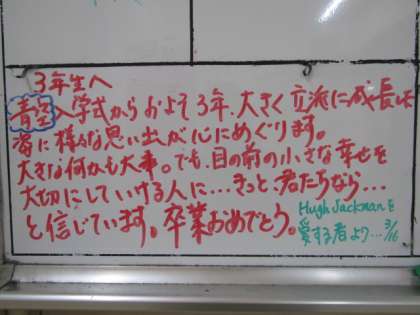 3年生へ
青空入学式からおよそ3年、大きく立派に成長した
姿に様々な思い出が心にめぐります。
大きな何かも大事。でも、目の前の小さな幸せを
大切にしていける人に…きっと、君たちなら…
と信じています。卒業おめでとう。
Hugh Jackmanを
愛する者より…3/16